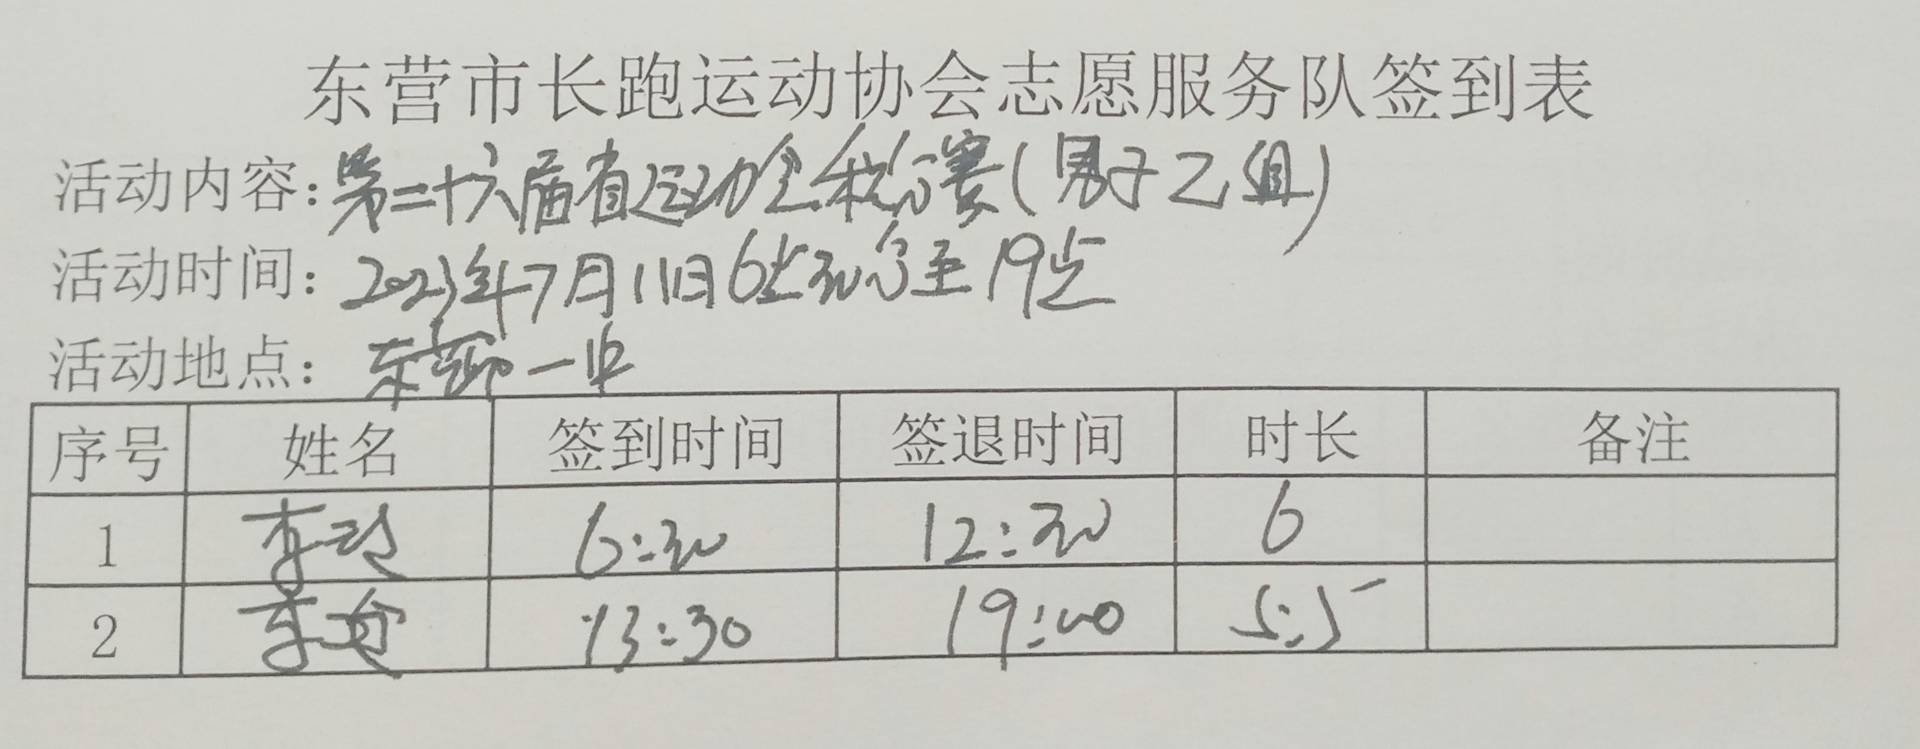 东营市长跑运动协会志愿服务队签到表
活动内容:第二十六届省运动会积分赛(男子乙组)
活动时间:2023年7月11日6点30分至19点
活动地点: 东营一中
序号 姓名 签到时间 签退时间 时长 备注
1 李玲 6:30 12:30 6
2 李 13:30 19:00 5.5